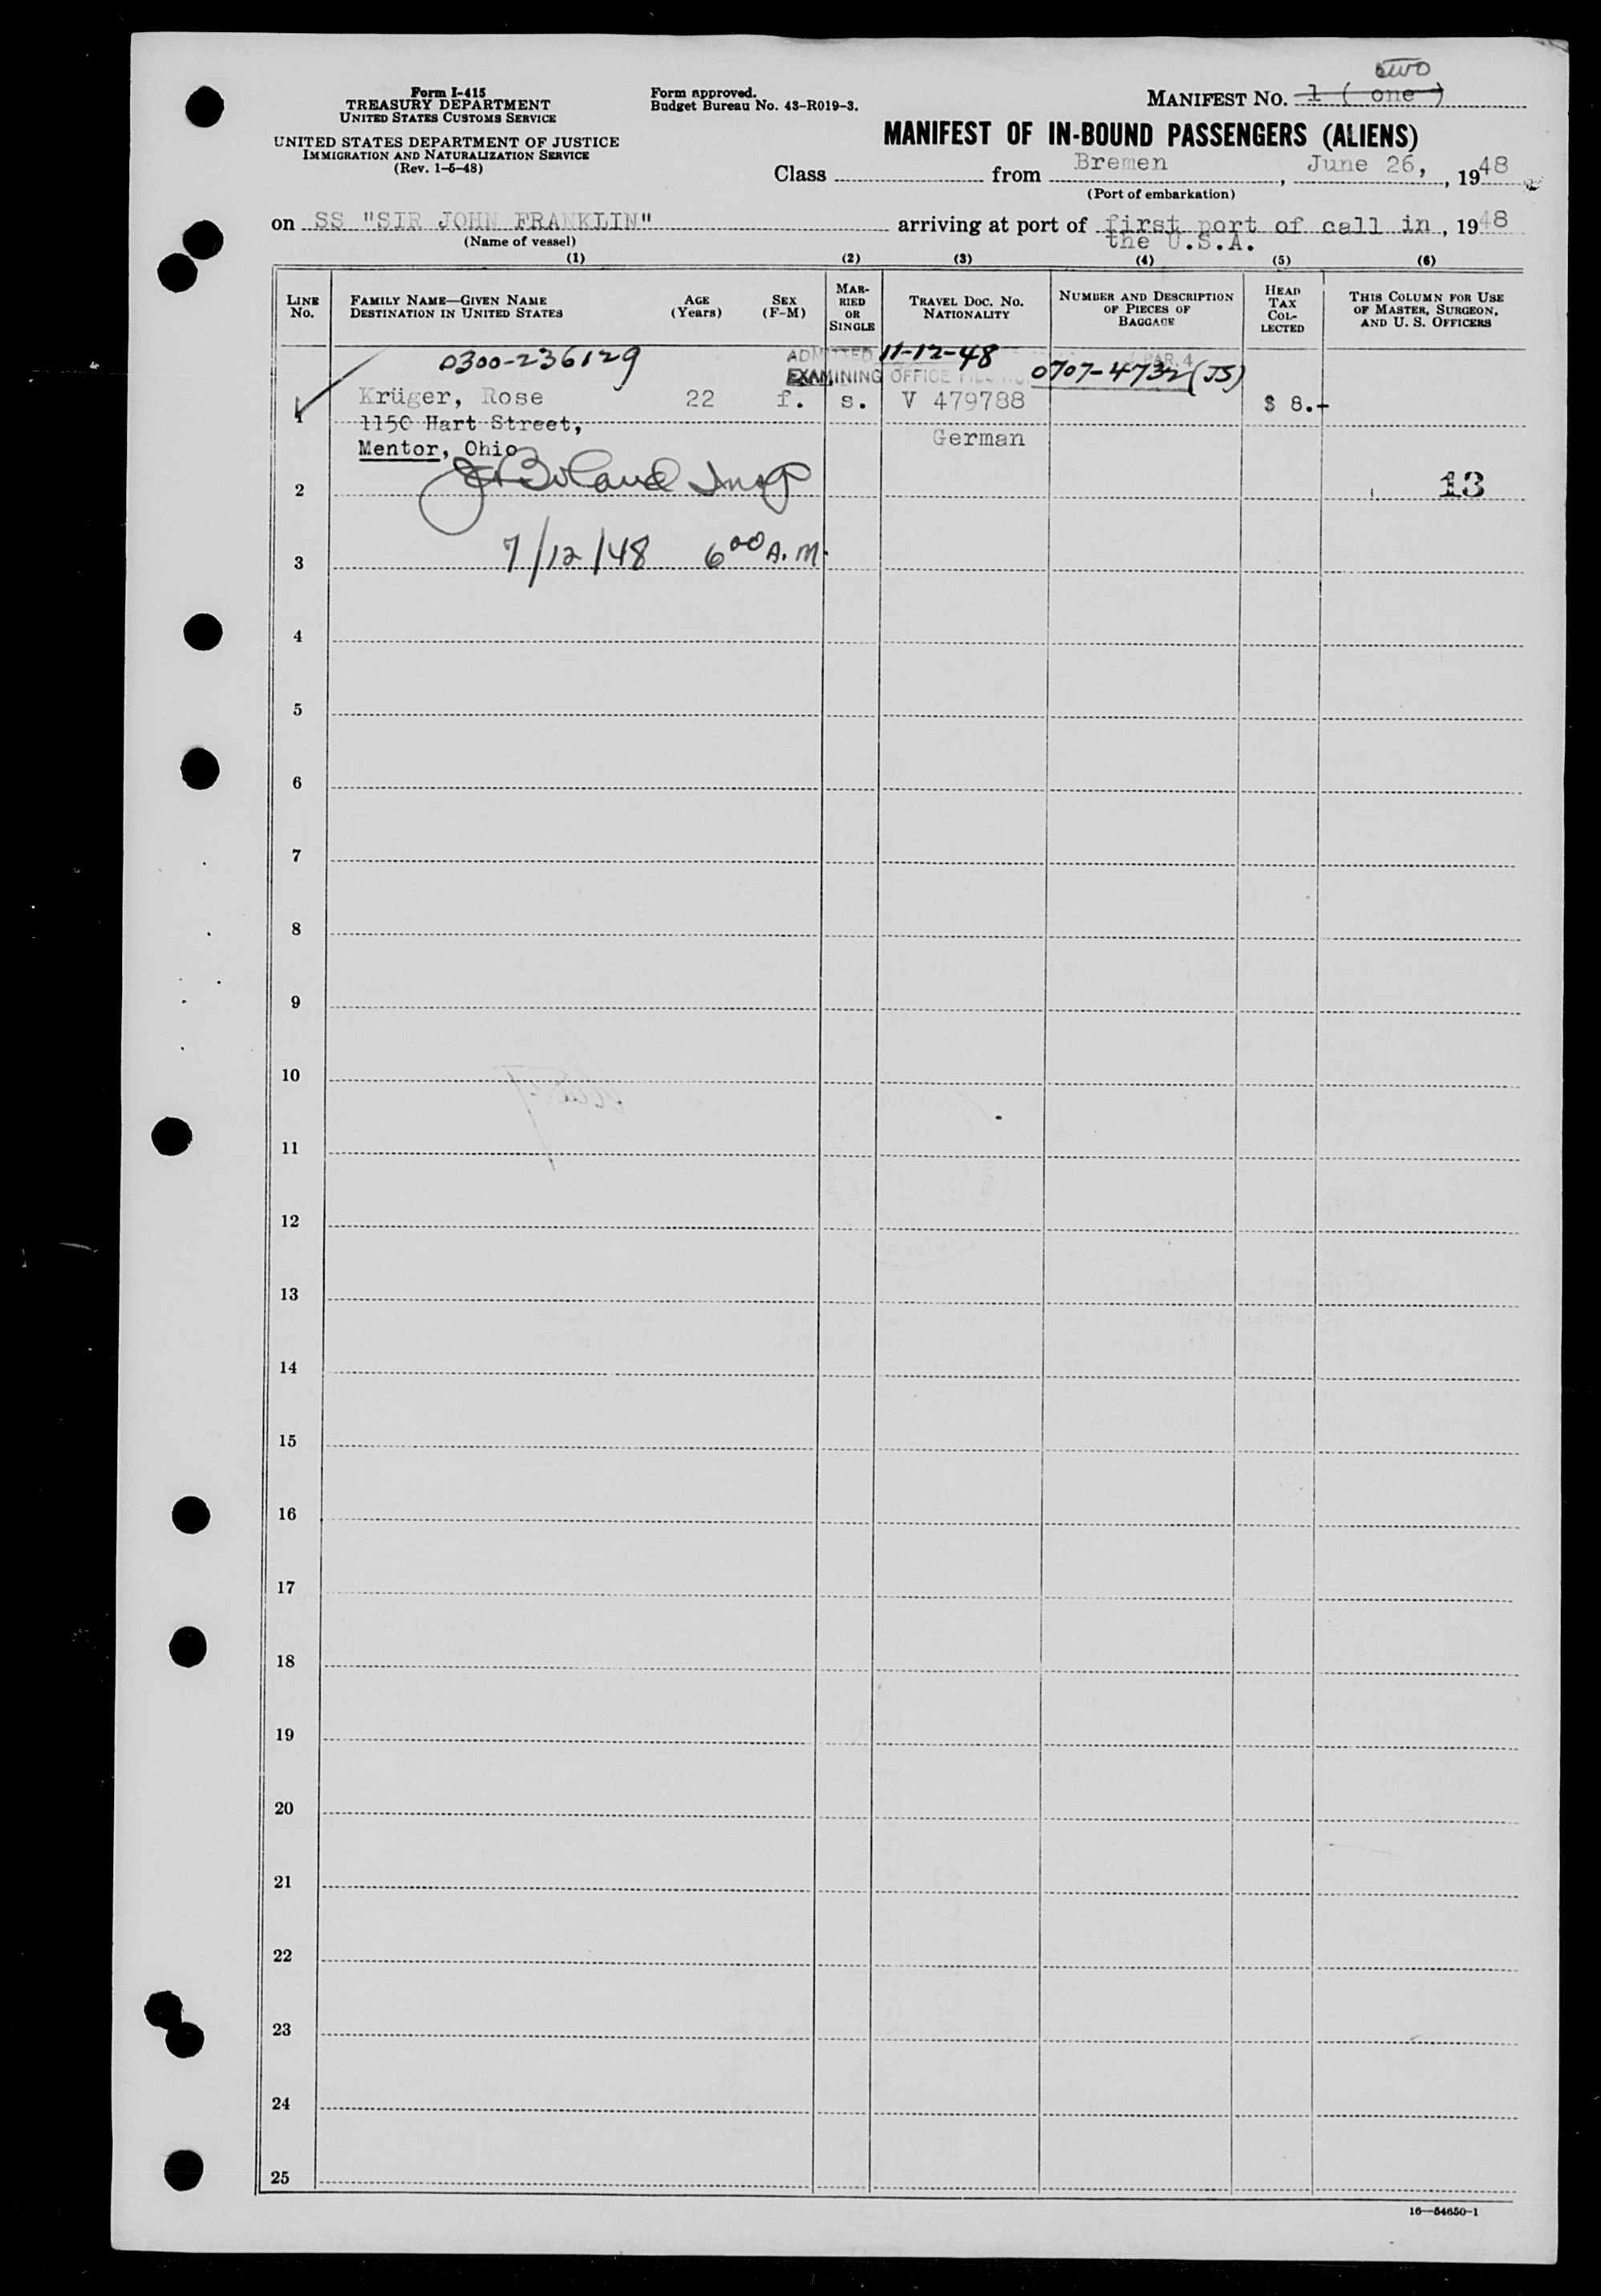 Form I-415
TREASURY DEPARTMENT
UNITED STATES CUSTOMS SERVICE
UNITED STATES DEPARTMENT OF JUSTICE
IMMIGRATION AND NATURALIZATION SERVICE
(Rev. 1-5-48)
Form approved.
Budget Bureau No. 43-R019-3.
two
MANIFEST NO. 1 ( one )
MANIFEST OF IN-BOUND PASSENGERS (ALIENS)
Class from Bremen, June 26, 1948
(Port of embarkation)
on SS "SIR JOHN FRANKLIN" arriving at port of first port of call in, 1948
the U.S.A.
(Name of vessel)
(1) (2) (3) (4) (5) (6)
LINE NO.
FAMILY NAME—GIVEN NAME
DESTINATION IN UNITED STATES
AGE
(Years)
SEX
(F-M)
MAR-
RIED
OR
SINGLE
TRAVEL DOC. NO.
NATIONALITY
NUMBER AND DESCRIPTION
OF PIECES OF
BAGGAGE
HEAD
TAX
COL-
LECTED
THIS COLUMN FOR USE
OF MASTER, SURGEON,
AND U. S. OFFICERS
0300-236129 ADMITTED 11-12-48 PAR. 4
EXAMINING OFFICE FILE NO. 0707-4732 (JS)
1 Krüger, Rose 22 f. s. V 479788 $ 8.-
1150 Hart Street,
German
Mentor, Ohio
2 13
7/12/48 6 00 A.M.
3
4
5
6
7
8
9
10
11
12
13
14
15
16
17
18
19
20
21
22
23
24
25
16—54650-1